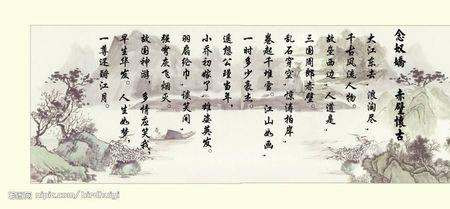 念奴嬌 赤壁懷古
大江东去,浪淘尽,
千古风流人物。
故垒西边,人道是,
三国周郎赤壁
乱石穿空,惊涛拍岸,
卷起千堆雪。江山如画,
一时多少豪杰
遥想公瑾当年
小乔初嫁了,雄姿英发。
羽扇纶巾,谈笑间
强弩灰飞烟灭
故国神游,多情应笑我,
早生华发。人生如梦,
一尊还酹江月。
昵图网 nipic.com/birdhuiyi